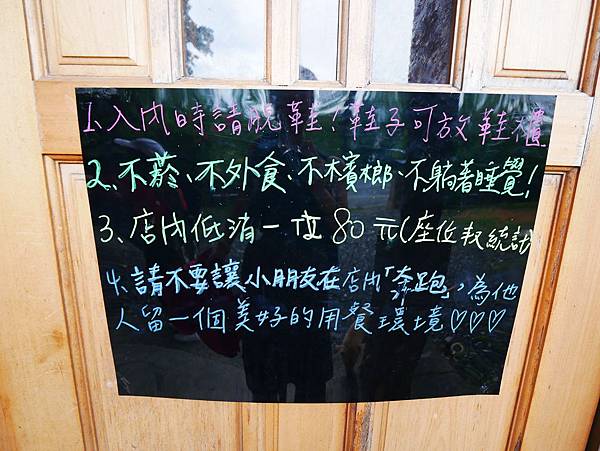 1.入內時請脫鞋！鞋子可放鞋櫃
2、不菸、不外食、不檳榔、不躺著睡覺！
3、店內低消一位80元(座位 統計)
4、請不要讓小朋友在店內「奔跑」，為他
人留一個美好的用餐環境♡♡♡